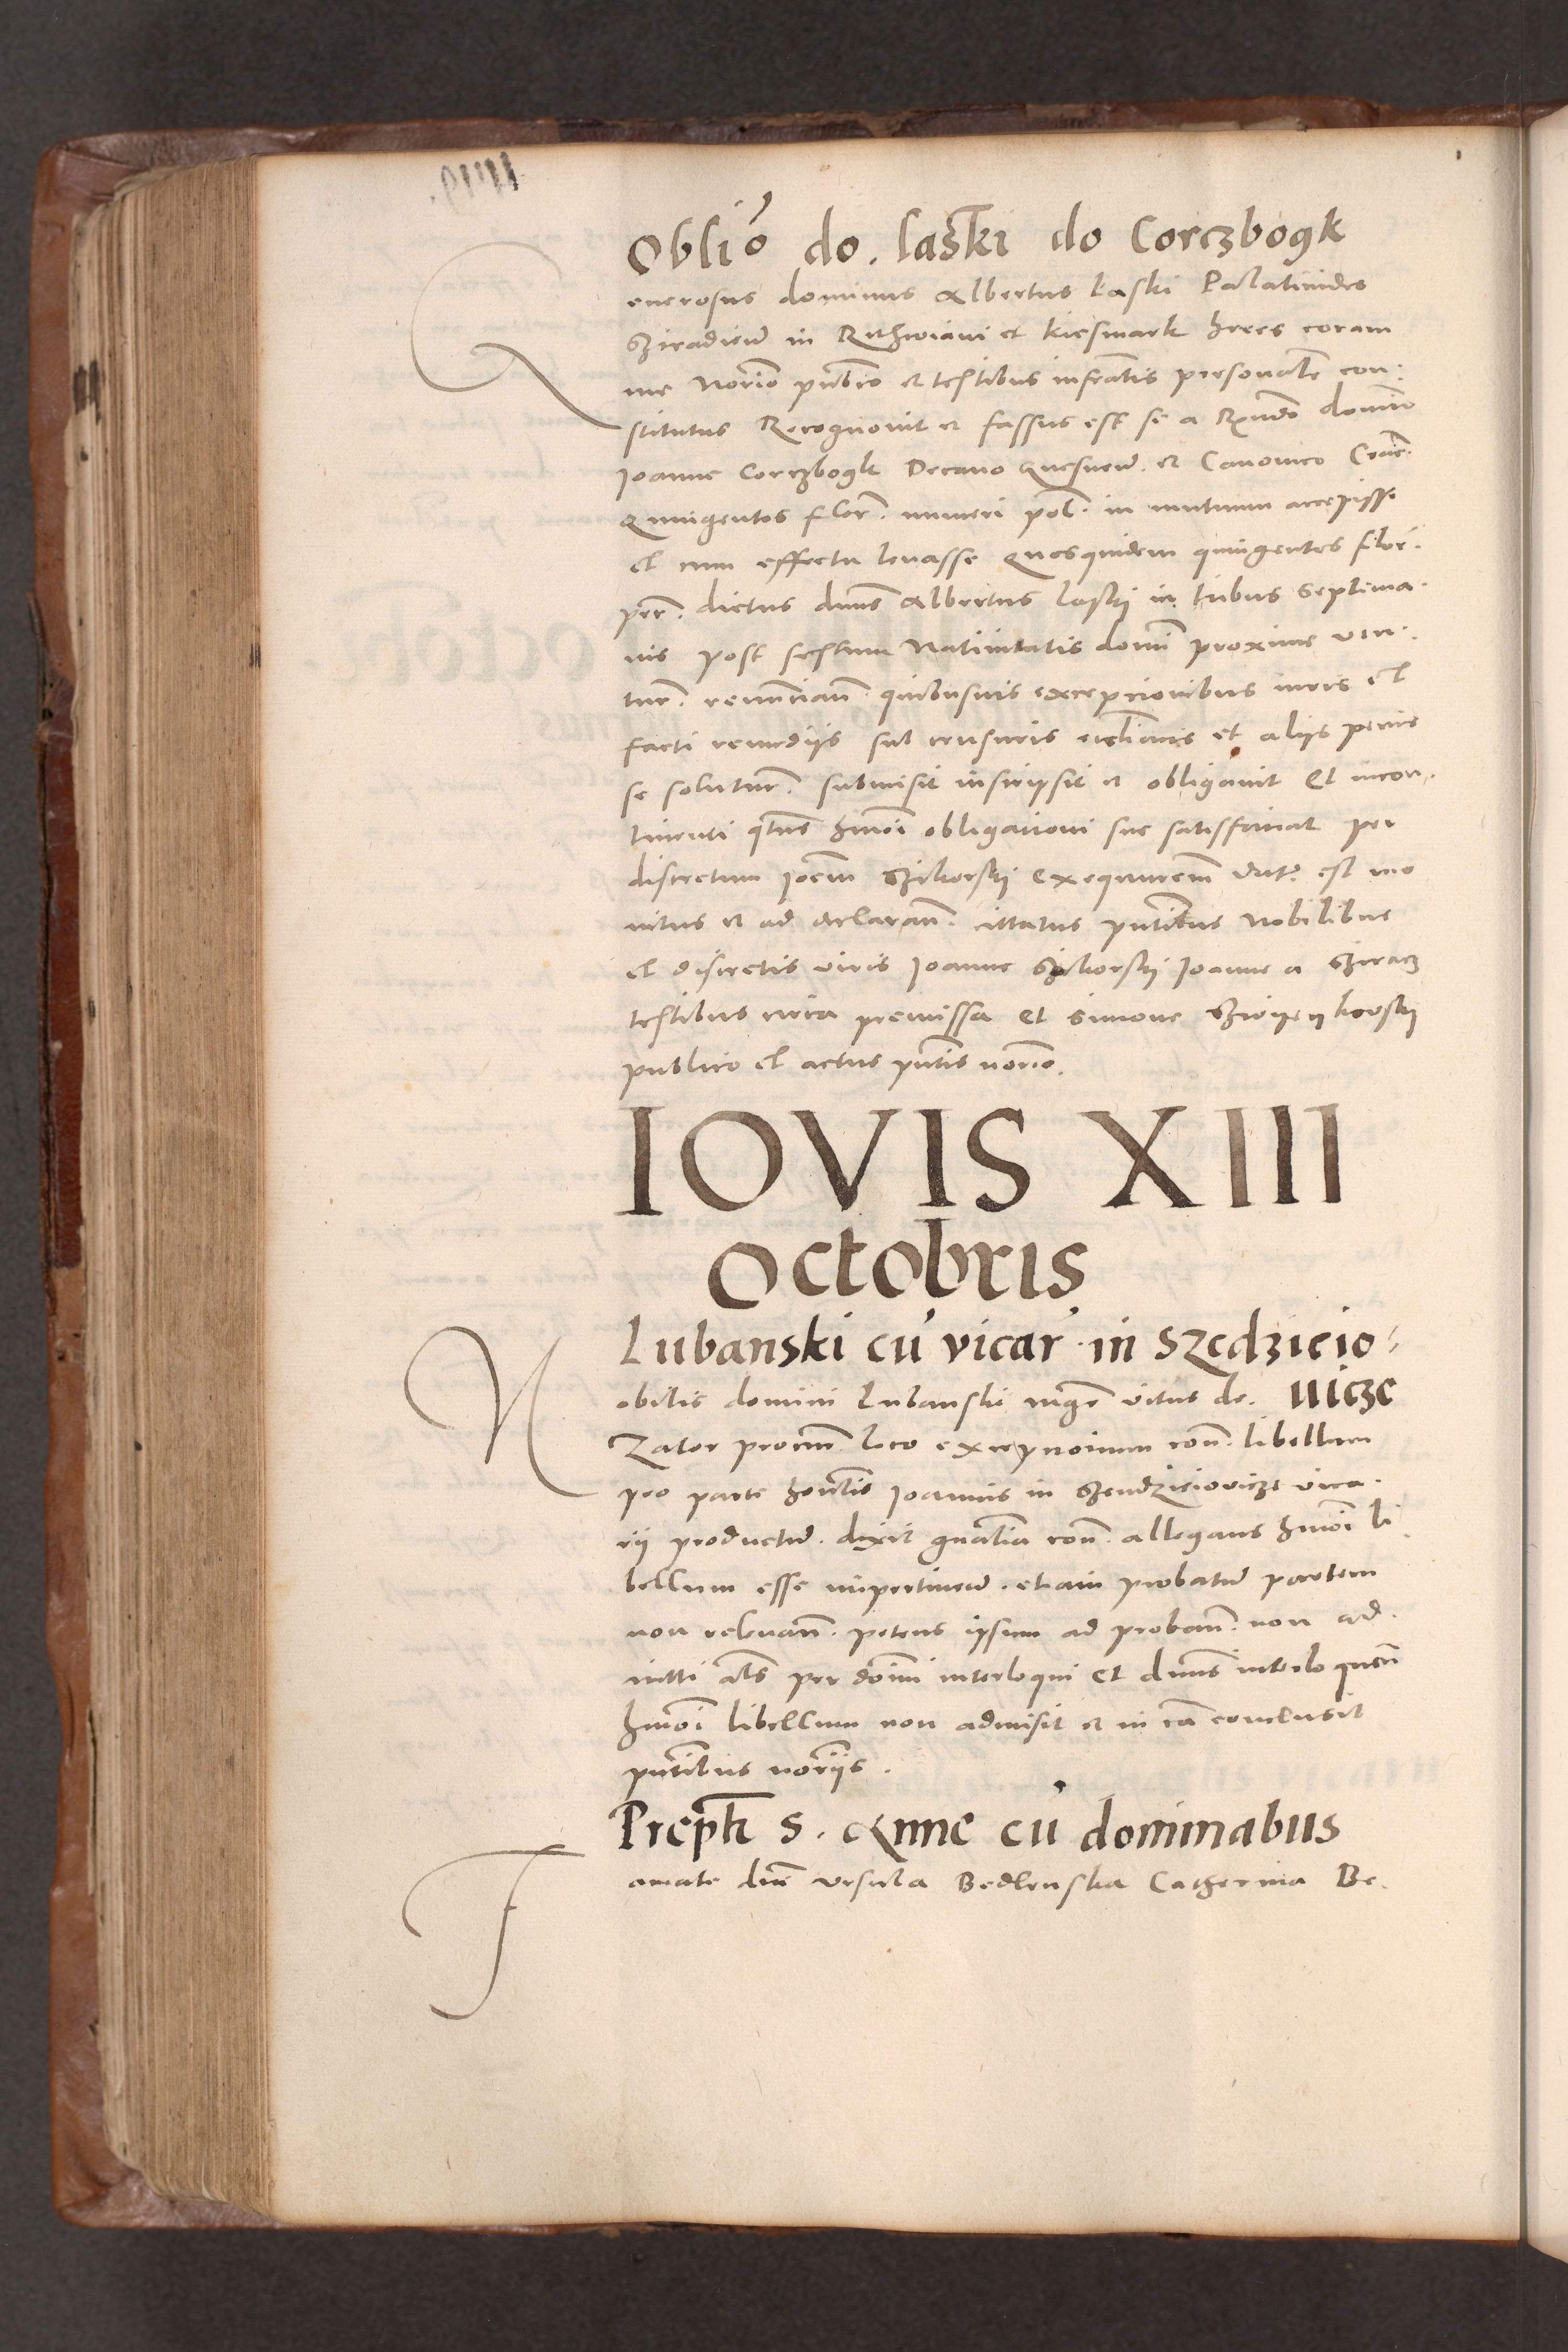 Oblió do. laski do Corczbogk
Generosus dominus Albertus Laski Palatinides
Sziradien in Rithwiani et kiesmark heres coram
me Norio publico et testibus infratis personalr con:
stitutus Recognovit et fassus est se a Rndo domino
Joanne Corczbogk Decano Gnesnen. et Canonico Crac.
quingentos flor. numeri pol. in mutuum accepisse
et cum effectu levasse quosquidem quingentos flor.
per. dictus dnus Albertus Laskj in tribus septima.
nis post festum Nativitatis domi proxime ven.
tur. renuncian. quibusvis exceptionibus iuris et
facti remedijs sub censuris ecclicis et alijs penis
se solutur. submisit inscripsit et obligavit Et incon.
tinenti qtus hmoi obligationi sue satisfaciat per
discretum Joem Szikorskj Exequutorem est mo
nitus et ad declaran. cittatus pntibus Nobilibus
et discretis viris Joanne Szikorskj Joanne a Szeracz
testibus circa premissa Et Simone
publico et actus pntis norio.
IOVIS XIII
Octobris
Lubanski cu vicar in Szedzicio,
vicze
Nobilis domini Lubanski mgr vitus de.
Zator procur. loco exceptionum con. libellum
pro parte honlis Joannis in Szendziciovicze vica.
rij productum. dixit gnalia con. allegans hmoi li
bellum esse impertinen. etiam probatum partem
non relevan. petens ipsum ad proban. non ad.
mitti als per dom interloqui Et dnus interloquen
hmoi libellum non admisit et in ca conclusit
pntibus norijs.
Prepti S. Anne cu dominabus
Famate dne Ursula Bedlenska Catherina Be.